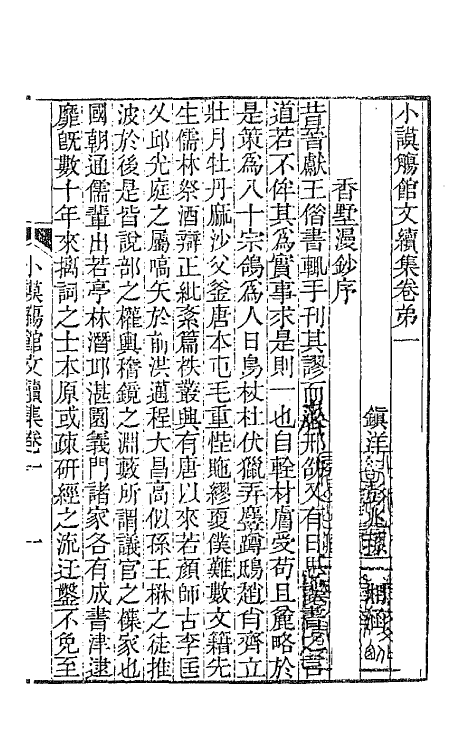 小謨觴館文續集卷弟一
鎮洋
香墅漫鈔序
昔晉獻王俗書輒手刊其謬而邢邵又有日思誤書之言
道若不侔其爲實事求是則一也自輇材膚受苟且麄略於
是策爲八十宗鴿爲人日鳥杕杜伏獵弄麞蹲鴟趙肖齊立
牡月牡丹麻沙父釜唐本乇毛重悂貤繆更僕難數文籍先
生儒林祭酒辯正紕紊篇袟叢興有唐以來若顏師古李匡
乂邱光庭之屬嚆矢於前洪邁程大昌高似孫王楙之徒推
波於後是皆說部之權輿稽鏡之淵藪所謂議官之傑家也
國朝通儒輩出若亭林潛邱湛園義門諸家各有成書津逮
靡旣數十年來摛詞之士本原或疎研經之流迂鑿不免至
小謨觴館文續集卷一
一